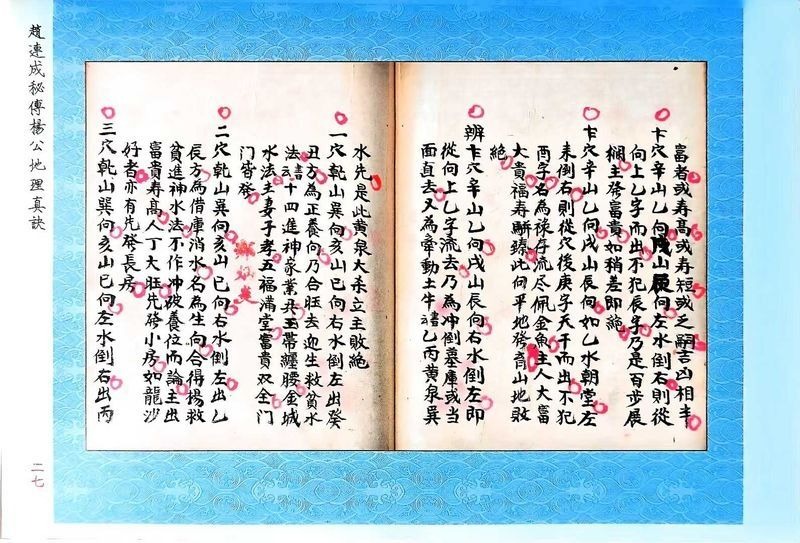 富者或壽高或壽短或乏嗣吉凶相半
卞穴辛山乙向戌山辰向左水倒右則從
向上乙字而出不犯辰字乃是百步展
欄主發富貴如稍差即絕
卞穴辛山乙向戌山辰向如乙水朝堂左
来倒右則從穴後庚子天干而出不犯
酉字名為祿存流尽佩金魚主人大富
大貴福壽駢臻此向平地發育山地敗
絕
辨卞穴辛山乙向戌山辰向右水倒左即
從向上乙字流去乃為冲倒墓庫或當
面直去又為牽動土牛諸乙丙黄泉巽
水先是此黄泉大杀立主敗絕
一穴乾山巽向亥山巳向右水倒左出癸
丑方為正養向乃合旺去迎生救貧水
法諸十四進神家業共玉帶纏腰金城
水法主妻子孝五福滿堂富貴双全門
門皆發
二穴乾山巽向亥山巳向右水倒左出乙
辰方為借庫消水名為生向合得楊救
貧進神水法不作冲破養位而論主出
富貴壽高人丁大旺先發小房如龍沙
好者亦有先發長房
三穴乾山巽向亥山巳向左水倒右出丙
趙連成秘傳楊公地理真訣
二七